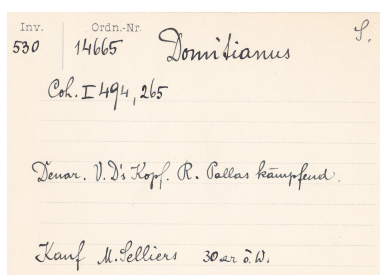 Inv. Ordn.-Nr. S.
530 14665 Domitianus
Coh. I 494, 265
Denar. V. D's Kopf. R. Pallas kämpfend.
Kauf M. Selliers 30 xr ö. W.